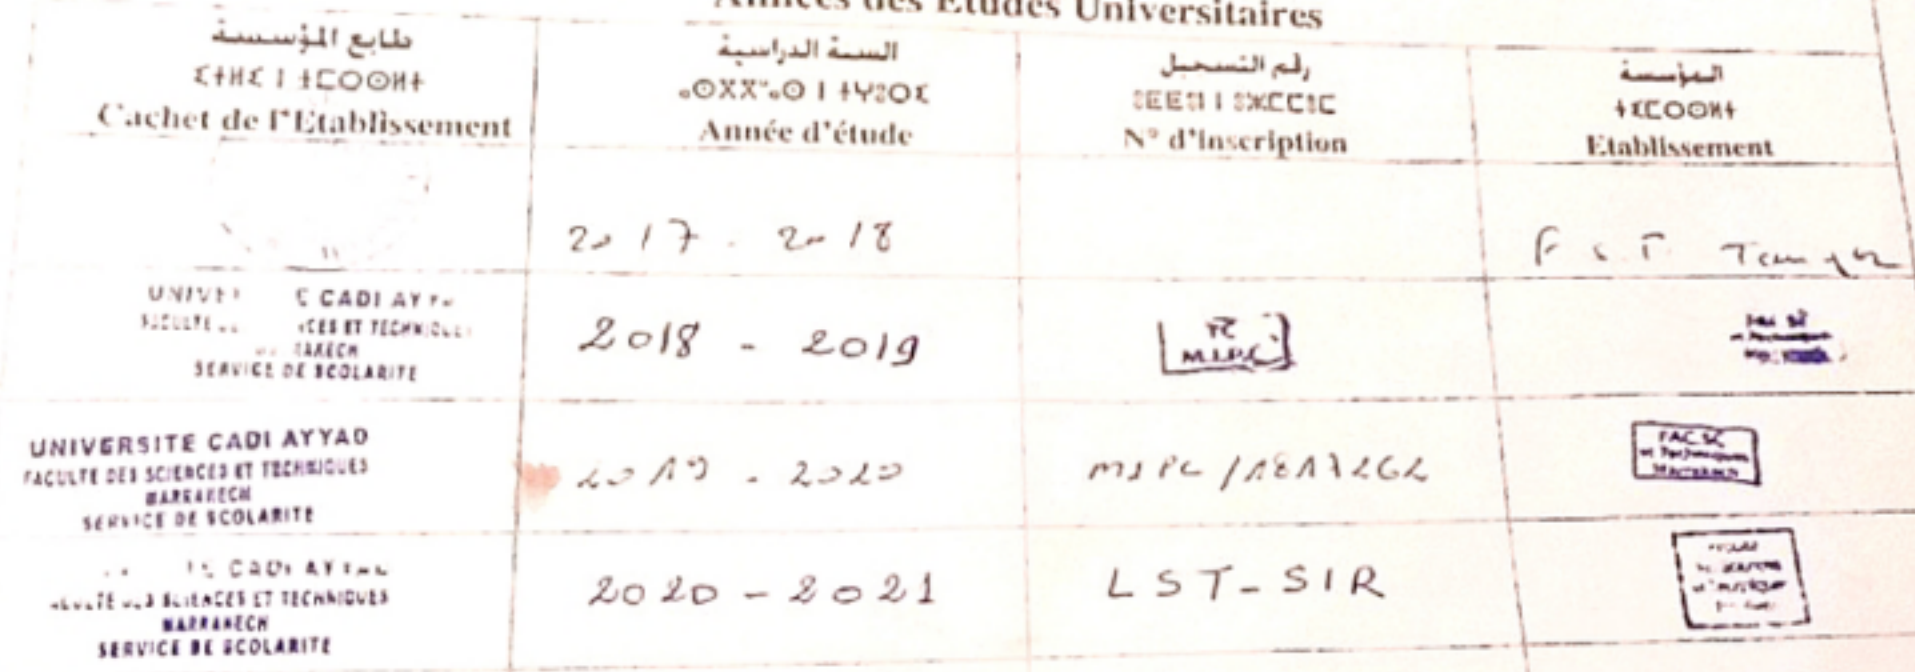 Années des Etudes Universitaires
طابع المؤسسة
ⵉⵜⵍⵉ ⵏ ⵜⵎⵔⵙⵍⵜ
Cachet de l'Etablissement
السنة الدراسية
ⴰⵙⴳⴳⵯⴰⵙ ⵏ ⵜⵖⵓⵔⵉ
Année d'étude
رقم التسجيل
N° d'inscription
المؤسسة
Etablissement
2017 - 2018
F S T Tanger
CADI AY
ET TECHNIQUES
SERVICE DE SCOLARITE
2018 - 2019
TC
M.I.P.C
UNIVERSITE CADI AYYAD
FACULTE DES SCIENCES ET TECHNIQUES
MARRAKECH
SERVICE DE SCOLARITE
2019 - 2020
MIPC /
FAC SC
et Techniques
MARRAKECH
CADI AY
SCIENCES ET TECHNIQUES
MARRAKECH
SERVICE DE SCOLARITE
2020 - 2021
LST - SIR